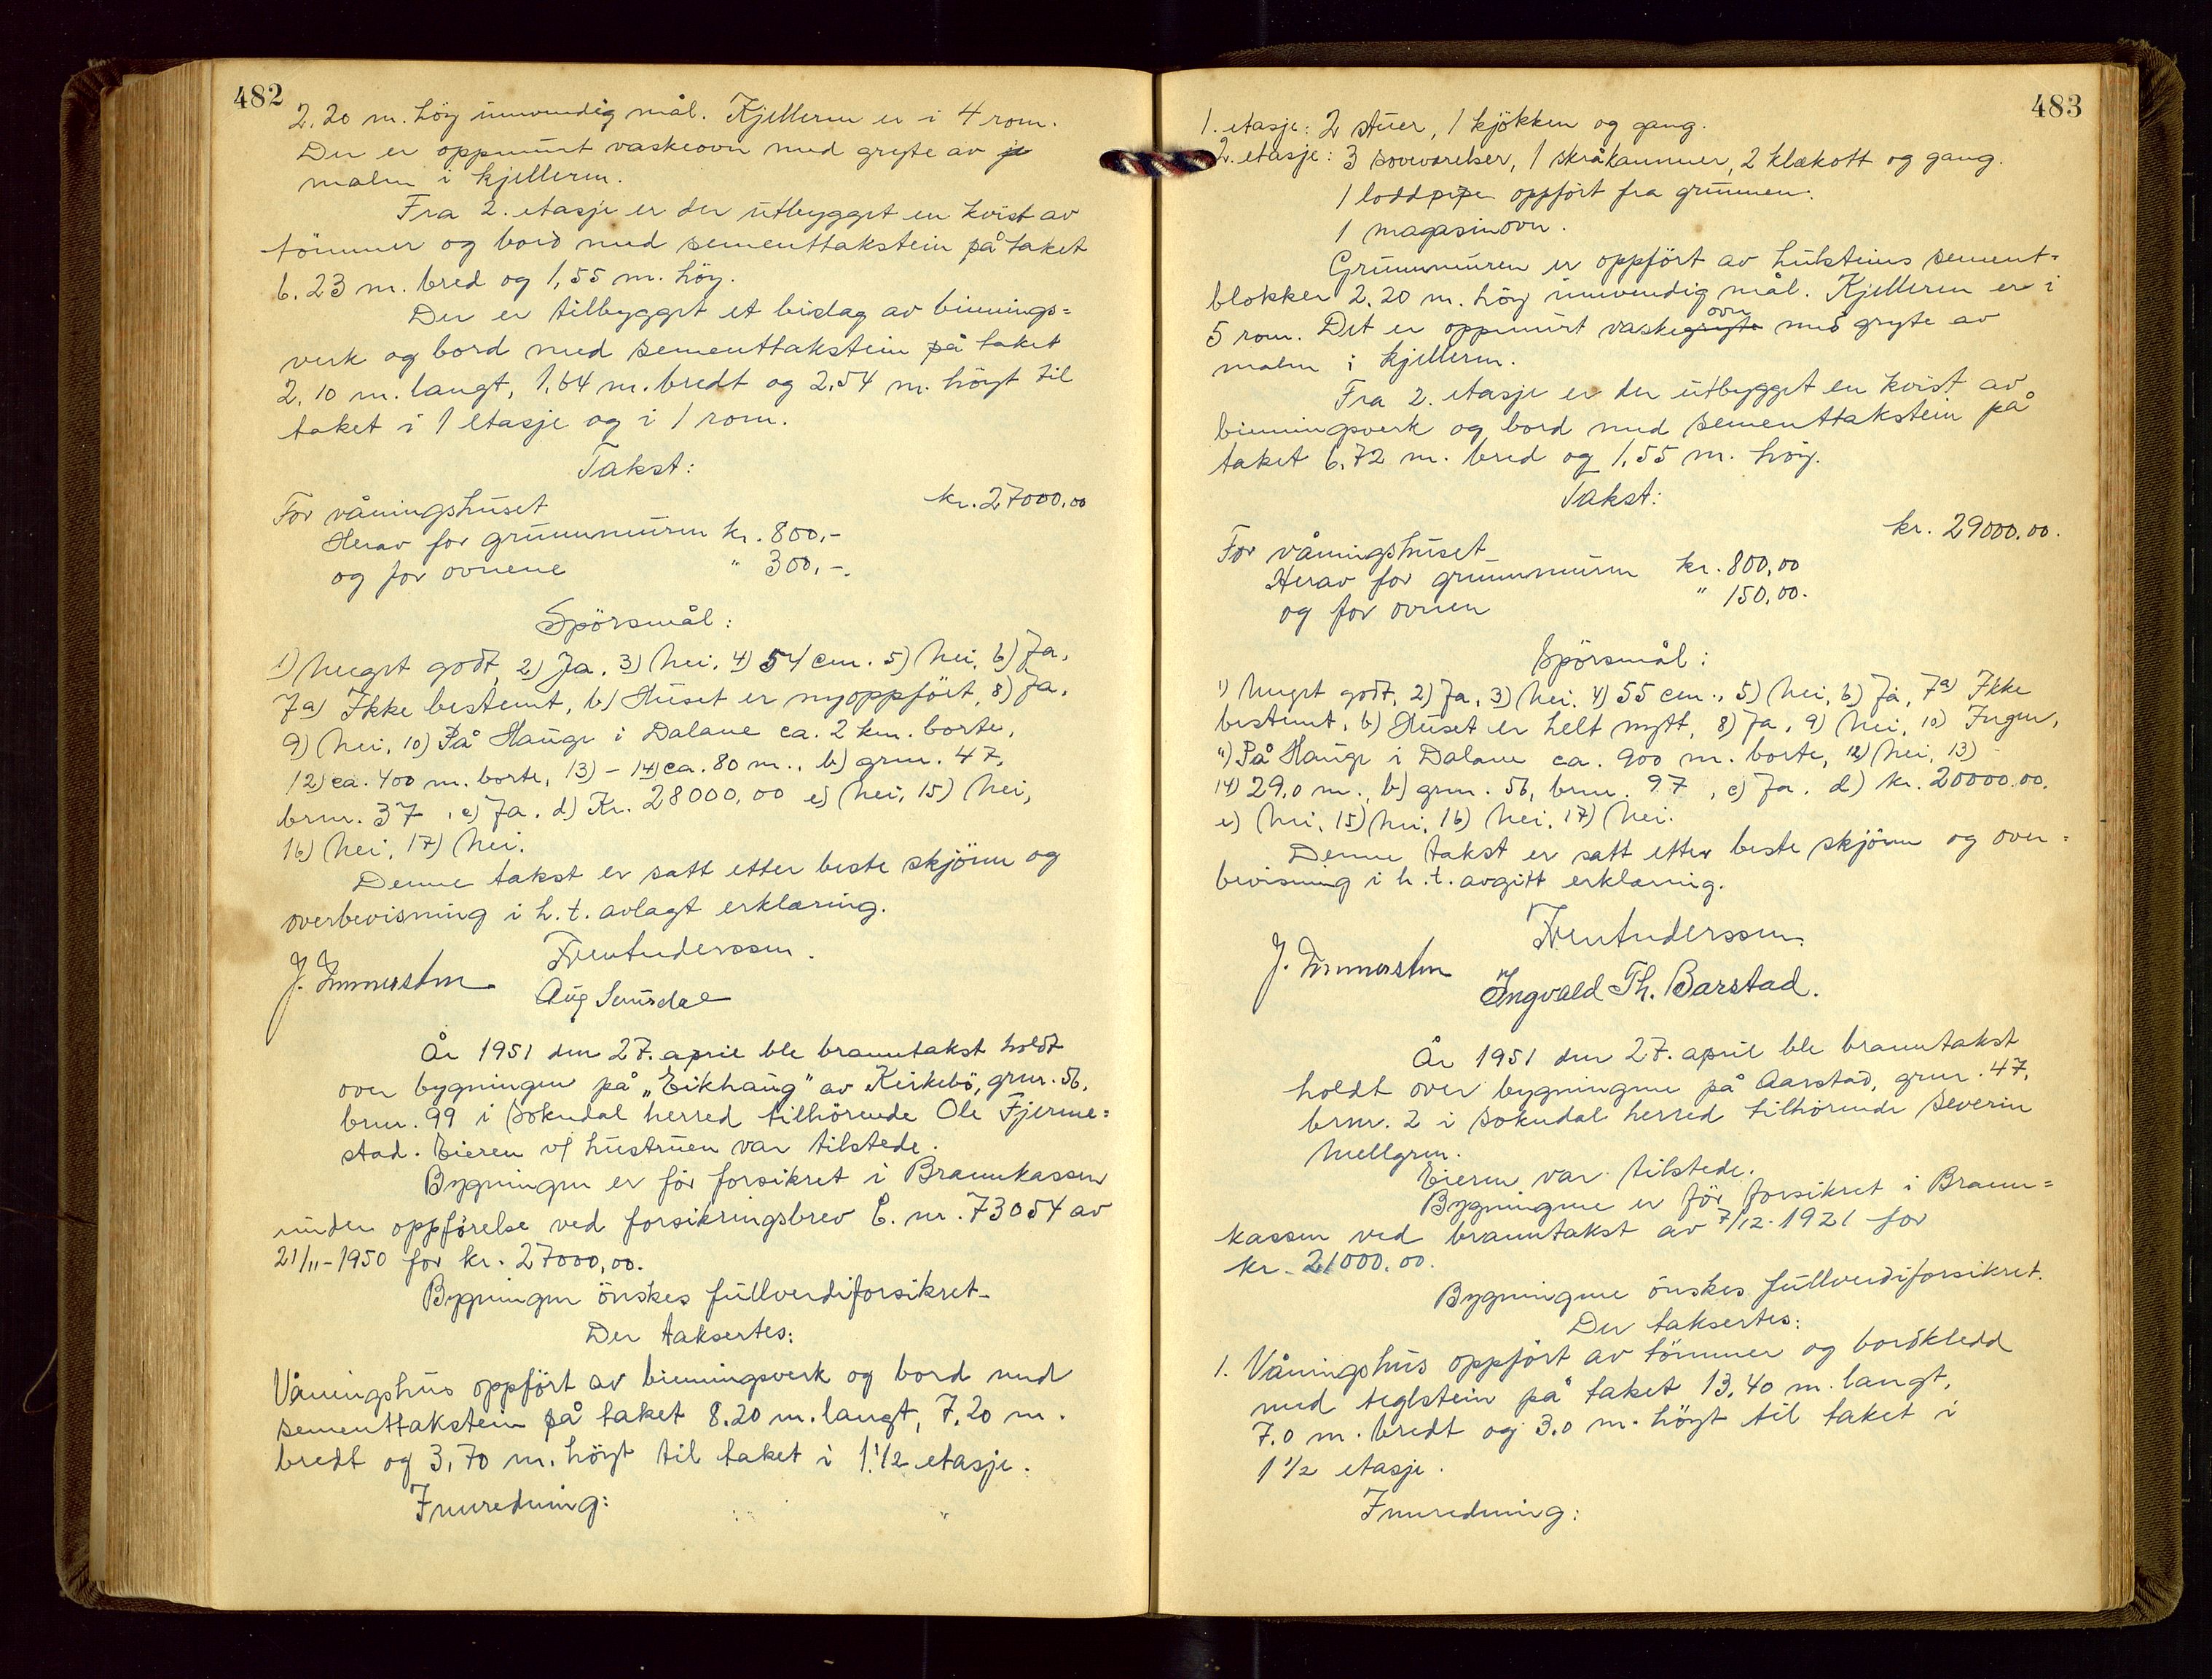 482
2.20 m. höy innvendig mål. Kjelleren er i 4 rom.
Der er oppmurt vaskeovn med gryte av
malm i kjelleren.
Fra 2. etasje er der utbygget en kvist av
tömmer og bord med sementtakstein på taket
6.23 m. bred og 1,55 m. höy.
Der er tilbygget et bislag av binnings=
verk og bord med sementtakstein på taket
2.10 m. langt, 1,64 m. bredt og 2,54 m. höyt til
taket i 1 etasje og i 1 rom.
Takst:
For våningshuset kr. 27000,00
Herav for grunnmuren kr. 800,-
og for ovnene " 300,-.
Spörsmål:
1) Meget godt, 2) Ja, 3) Nei, 4) 54 cm. 5) Nei, 6) Ja,
7a) Ikke bestemt, b) Huset er nyoppfört, 8) Ja,
9) Nei, 10) På Hauge i Dalane ca. 2 km. borte,
12) ca. 400 m. borte, 13) - 14) ca. 80 m., b) grnr. 47,
brnr. 37, c) Ja. d) Kr. 28000,00 e) Nei, 15) Nei,
16) Nei, 17) Nei.
Denne takst er satt etter beste skjönn og
overbevisning i h.t. avlagt erklæring.
Aug
År 1951 den 27. april ble branntakst holdt
over bygningen på „Eikhaug" av Kirkebö, grnr. 56,
brnr. 99 i Sokndal herred tilhörende Ole Fjerme=
stad. Eieren v/ hustruen var tilstede.
Bygningen er för forsikret i Brannkassen
under oppförelse ved forsikringsbrev E. nr. 73054 av
21/11-1950 for kr. 27000,00.
Bygningen önskes fullverdiforsikret.
Der taksertes:
Våningshus oppfört av binningsverk og bord med
sementtakstein på taket 8.20 m. langt, 7,20 m.
bredt og 3,70 m. höyt til taket i 1 1/2 etasje.
Innredning:
483
1. etasje: 2 stuer, 1 kjökken og gang.
2. etasje: 3 soveværelser, 1 skråkammer, 2 klækott og gang.
1 loddpipe oppfört fra grunnen.
1 magasinovn.
Grunnmuren er oppfört av hulsteins sement=
blokker 2,20 m. höy innvendig mål. Kjelleren er i
ovn
5 rom. Det er oppmurt vaskegryte med gryte av
malm i kjelleren.
Fra 2. etasje er der utbygget en kvist av
binningsverk og bord med sementtakstein på
taket 6,72 m. bred og 1,55 m. höy.
Takst:
For våningshuset kr. 29000,00.
Herav for grunnmuren kr. 800,00
og for ovnen " 150,00.
Spörsmål:
1) Meget godt, 2) Ja, 3) Nei. 4) 55 cm., 5) Nei, 6) Ja, 7a) Ikke
bestemt, b) Huset er helt nytt, 8) Ja, 9) Nei, 10) Ingen,
11) På Hauge i Dalane ca. 900 m. borte, 12) Nei, 13) -
14) 29,0 m., b) grnr. 56, brnr. 97, c) Ja. d) kr. 20000,00.
e) Nei, 15) Nei, 16) Nei, 17) Nei.
Denne takst er satt etter beste skjönn og over=
bevisning i h.t. avgitt erklæring.
Ingvald Th. Barstad.
År 1951 den 27. april ble branntakst
holdt over bygningene på Aarstad, grnr. 47,
brnr. 2 i Sokndal herred tilhörende Severin
Mellgren.
Eieren var tilstede.
Bygningene er för forsikret i Brann=
kassen ved branntakst av 7/12-1921 for
kr. 21000,00.
Bygningene önskes fullverdiforsikret.
Der taksertes:
1. Våningshus oppfört av tömmer og bordkledd
med teglstein på taket 13,40 m. langt,
7.0 m. bredt og 3.0 m. höyt til taket i
1 1/2 etasje.
Innredning: